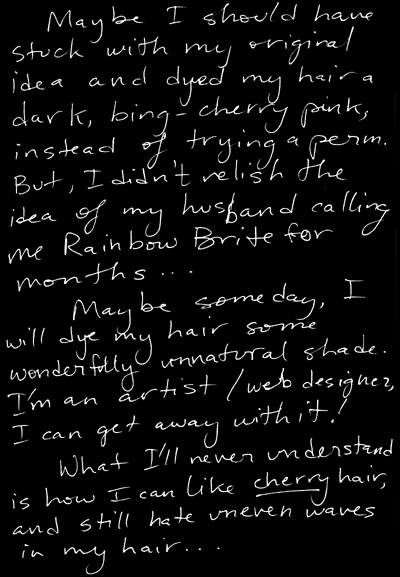 Maybe I should have
stuck with my original
idea and dyed my hair a
dark, bing-cherry pink,
instead of trying a perm.
But, I didn't relish the
idea of my husband calling
me Rainbow Brite for
months...
Maybe someday, I
will dye my hair some
wonderfully unnatural shade.
I'm an artist/web designer,
I can get away with it!
What I'll never understand
is how I can like cherry hair,
and still hate uneven waves
in my hair...